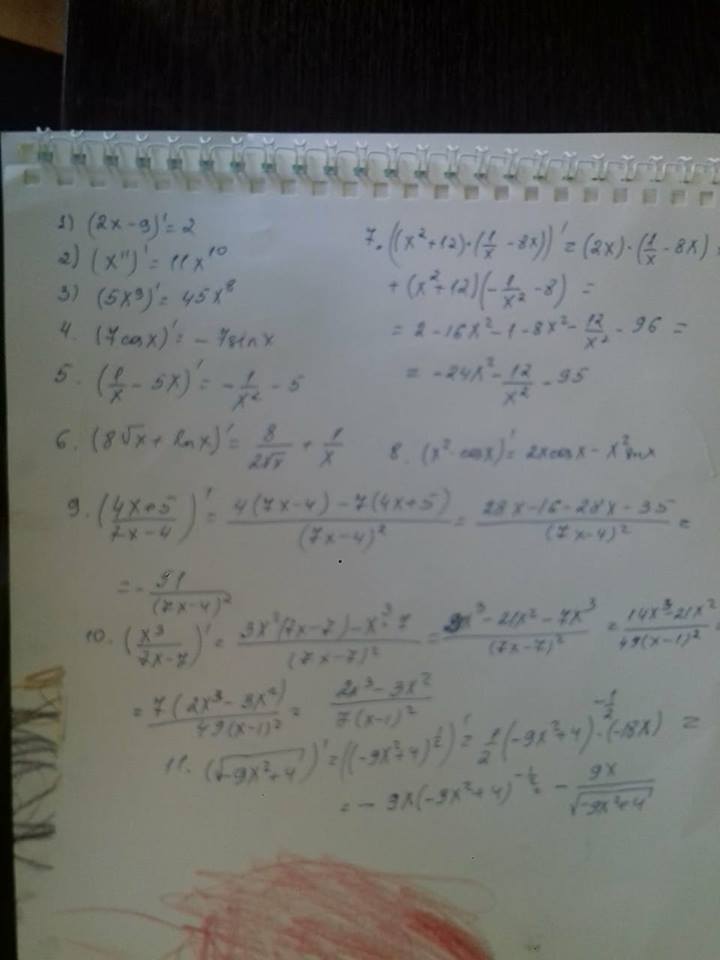 1) (2x-9)' = 2
2) (x¹¹)' = 11x¹⁰
3) (5x⁹)' = 45x⁸
4. (7cosx)' = -7sinx
5. (1/x - 5x)' = -1/x² - 5
6. (8√x + lnx)' = 8/2√x + 1/x
7. ((x²+12)·(1/x - 8x))' = (2x)·(1/x - 8x) +
+ (x²+12)(-1/x² - 8) =
= 2 - 16x² - 1 - 8x² - 12/x² - 96 =
= -24x² - 12/x² - 95
8. (x² cosx)' = 2xcosx - x² sinx
9. ((4x+5)/(7x-4))' = (4(7x-4) - 7(4x+5))/(7x-4)² = (28x-16-28x-35)/(7x-4)² =
= -51/(7x-4)²
10. (x³/(7x-7))' = (3x²(7x-7) - x³·7)/(7x-7)² = (x³ - 21x² - 7x³)/(7x-7)² = (14x³-21x²)/49(x-1)² =
= 7(2x³-3x²)/49(x-1)² = (2x³-3x²)/7(x-1)²
11. (√(-9x²+4))' = ((-9x²+4)^½)' = 1/2(-9x²+4)^-½·(-18x) =
= -9x(-9x²+4)^-½ = -9x/√(-9x²+4)